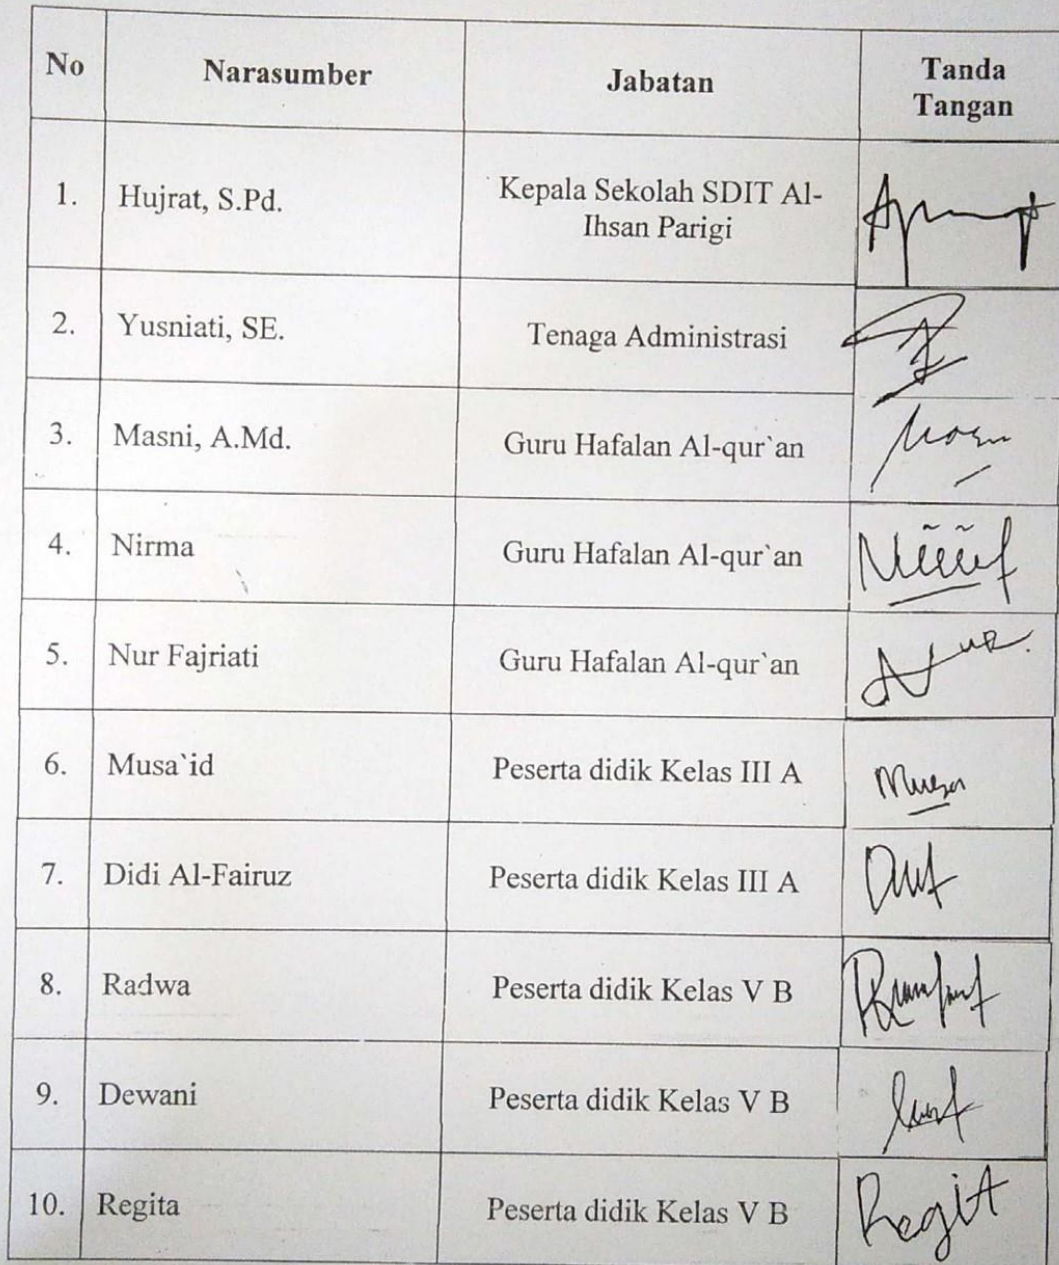 No Narasumber Jabatan Tanda
Tangan
1. Hujrat, S.Pd. Kepala Sekolah SDIT Al-
Ihsan Parigi
2. Yusniati, SE. Tenaga Administrasi
3. Masni, A.Md. Guru Hafalan Al-qur`an
4. Nirma Guru Hafalan Al-qur`an
5. Nur Fajriati Guru Hafalan Al-qur`an
6. Musa`id Peserta didik Kelas III A
7. Didi Al-Fairuz Peserta didik Kelas III A
8. Radwa Peserta didik Kelas V B
9. Dewani Peserta didik Kelas V B
10. Regita Peserta didik Kelas V B Regit